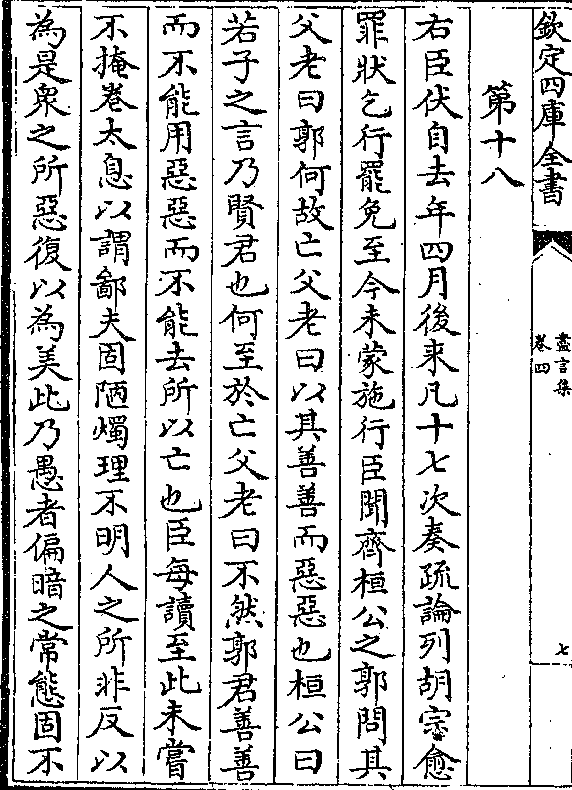 欽定四庫全書
盡言集
卷四
七
第十八
右臣伏自去年四月後来凡十七次奏疏論列胡宗愈
罪狀乞行罷免至今未蒙施行臣聞齊桓公之郭問其
父老曰郭何故亡父老曰以其善善而惡惡也桓公曰
若子之言乃賢君也何至於亡父老曰不然郭君善善
而不能用惡惡而不能去所以亡也臣每讀至此未嘗
不掩卷太息以謂鄙夫固陋燭理不明人之所非反以
為是衆之所惡復以為美此乃愚者偏暗之常態固不